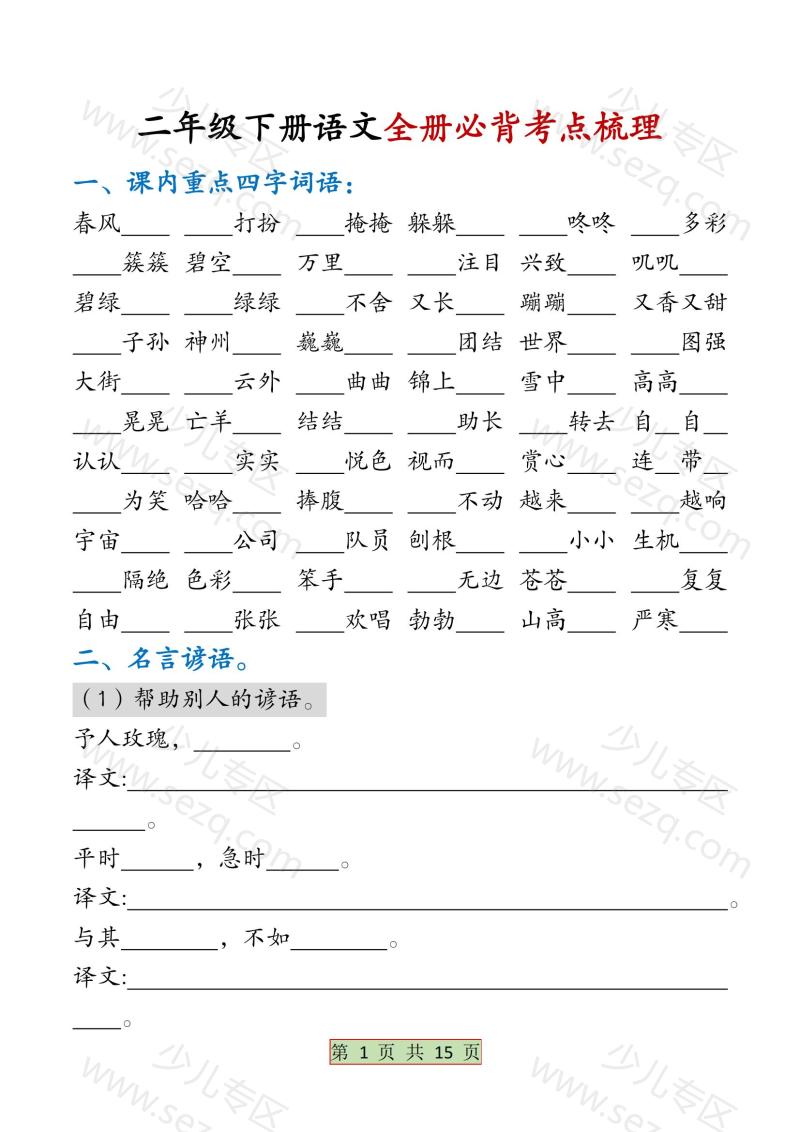 二年级下册语文全册必背考点梳理
一、课内重点四字词语：
春风____ ____打扮 ____掩掩 躲躲____ ____咚咚 ____多彩
____簇簇 碧空____ 万里____ ____注目 兴致____ 叽叽____
碧绿____ ____绿绿 ____不舍 又长____ 蹦蹦____ 又香又甜
____子孙 神州____ 巍巍____ ____团结 世界____ ____图强
大街____ ____云外 ____曲曲 锦上____ 雪中____ 高高____
____晃晃 亡羊____ 结结____ ____助长 ____转去 自__自__
认认____ ____实实 ____悦色 视而____ 赏心____ 连__带__
____为笑 哈哈____ 捧腹____ ____不动 越来____ ____越响
宇宙____ ____公司 ____队员 刨根____ ____小小 生机____
____隔绝 色彩____ 笨手____ ____无边 苍苍____ ____复复
自由____ ____张张 ____欢唱 勃勃____ 山高____ 严寒____
二、名言谚语。
（1）帮助别人的谚语。
予人玫瑰，________。
译文:__________________________________________________
______。
平时______，急时______。
译文:__________________________________________________。
与其________，不如________。
译文:__________________________________________________
____。
第 1 页 共 15 页
少儿专区
www.sezq.com
少儿专区
www.sezq.com
少儿专区
www.sezq.com
少儿专区
www.sezq.com
少儿专区
www.sezq.com
少儿专区
www.sezq.com
少儿专区
www.sezq.com
少儿专区
www.sezq.com